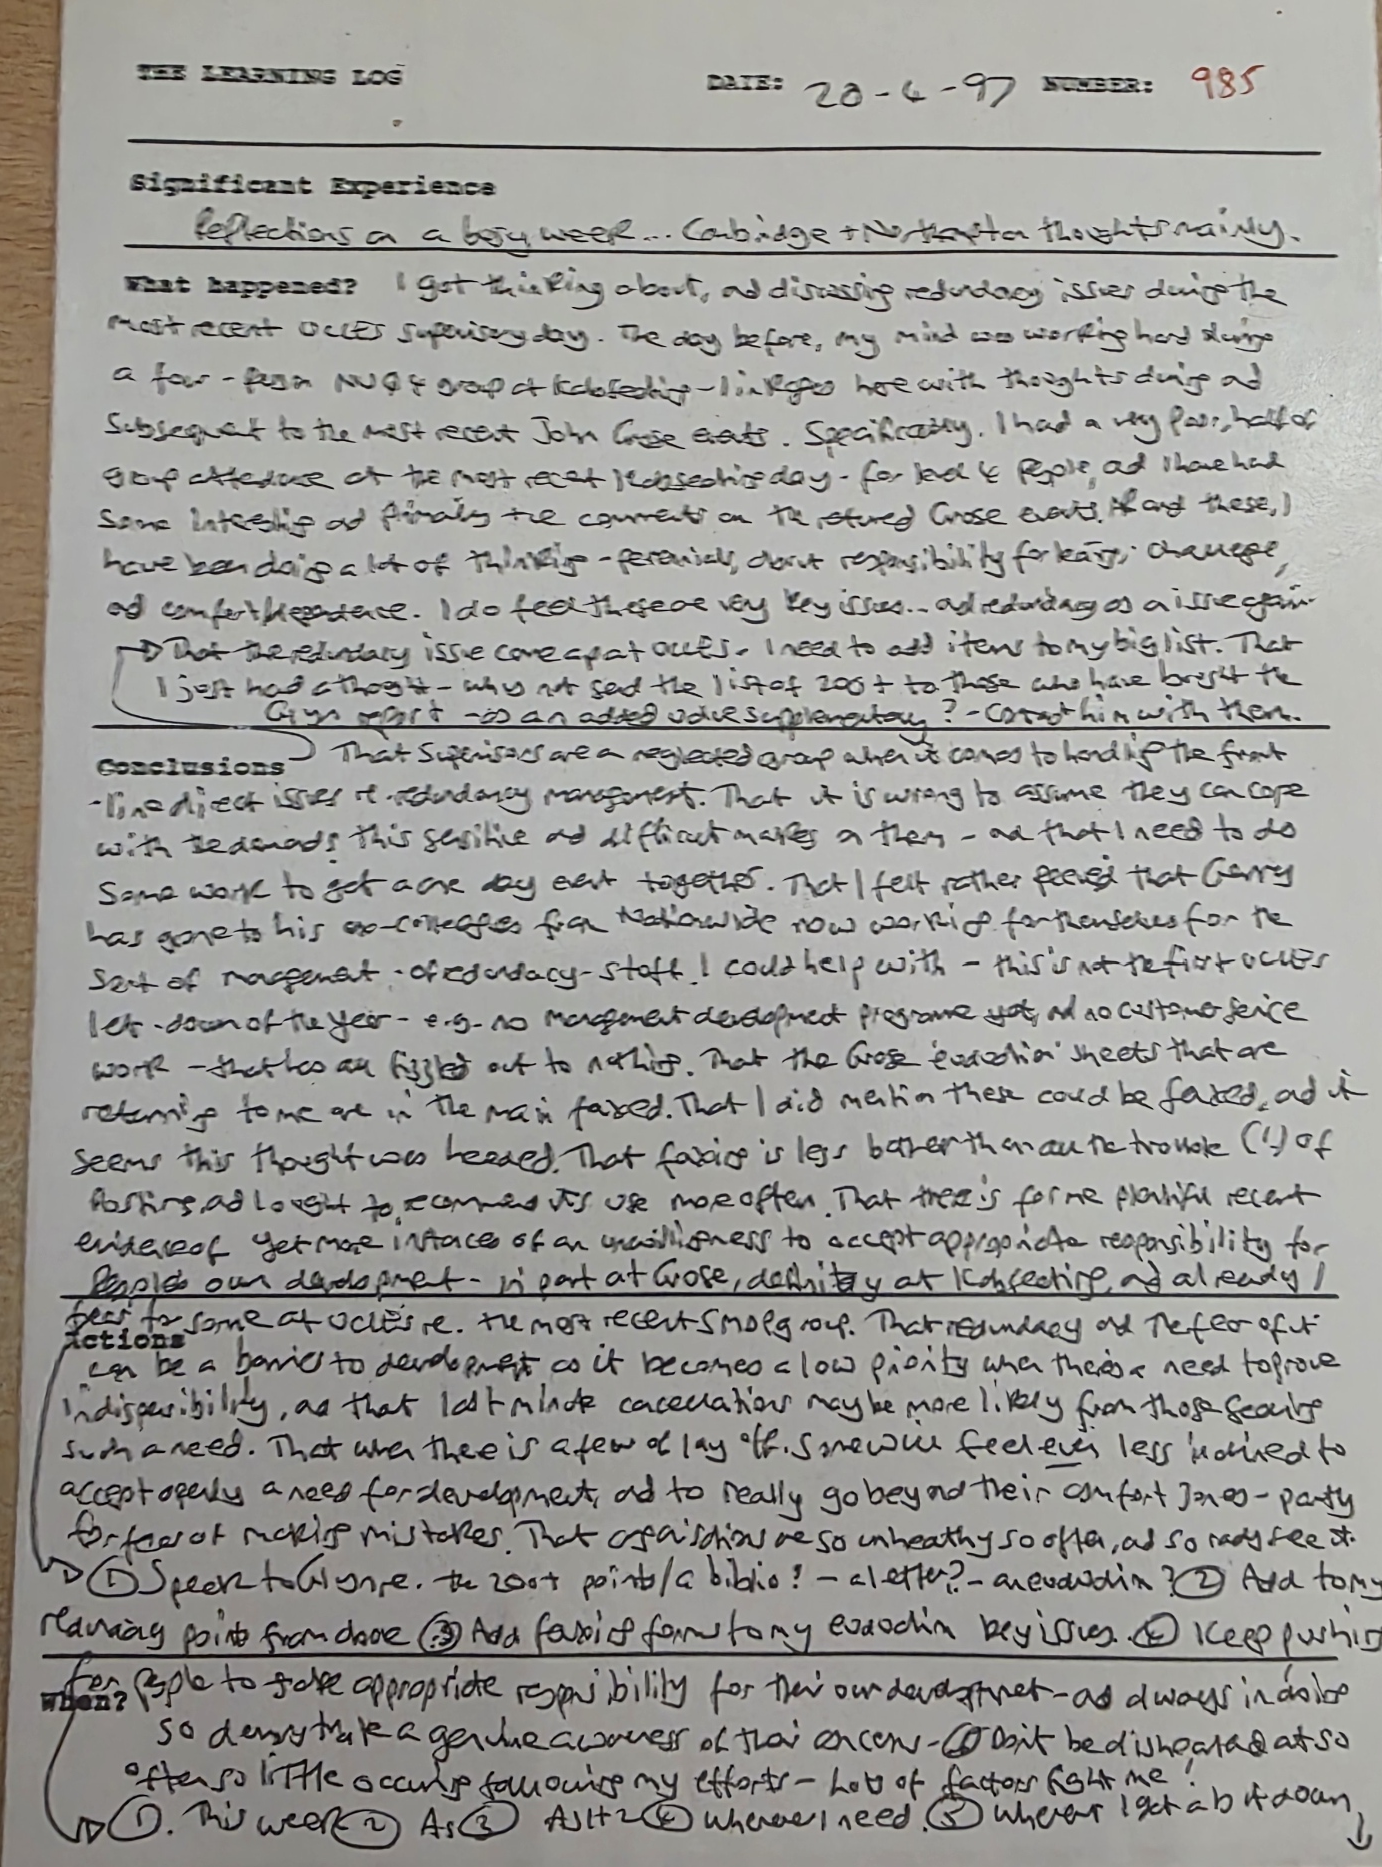 THE LEARNING LOG DATE: 20-4-97 NUMBER: 985
Significant Experience
Reflections on a busy week... Cambridge + Northampton thoughts mainly.
What happened? I got thinking about, and discussing redundancy issues during the
most recent UCLES supervisory day. The day before, my mind was working hard during
a four-person NVQ 4 group at - linkages here with thoughts during and
subsequent to the most recent John Crose events. Specifically, I had a very poor, half of
group attendance at the most recent day - for level 4 people, and I have had
some interesting and the comments on the returned Crose events. these, I
have been doing a lot of thinking - perennials, about responsibility for learning, challenge,
and comfort/dependence. I do feel these are very key issues... and redundancy as a issue again.
That the redundancy issue came up at UCLES. I need to add items to my big list. That
I just had a thought - why not send the list of 200+ to those who have bought the
report - as an added value supplementary? - Contact him with them.
Conclusions That Supervisors are a neglected group when it comes to handling the front
-line direct issues re. redundancy management. That it is wrong to assume they can cope
with the demands this sensitive and difficult makes on them - and that I need to do
some work to get a one day event together. That I felt rather peeved that Gerry
has gone to his ex-colleagues from Nationwide now working for themselves for the
sort of management-of-redundancy-stuff I could help with - this is not the first UCLES
let-down of the year - e.g. no management development programme yet, and no customer service
work - that has all fizzled out to nothing. That the Crose 'evaluation' sheets that are
returning to me are in the main faxed. That I did mention these could be faxed, and it
seems this thought was heeded. That faxing is less bother than all the trouble (!) of
Posting, and I ought to recommend its use more often. That there is for me plentiful recent
evidence of yet more instances of an unwillingness to accept appropriate responsibility for
people's own development - in part at Crose, definitely at , and already I
fear for some at UCLES re. the most recent group. That redundancy and the fear of it
Actions can be a barrier to development as it becomes a low priority when there's a need to prove
indispensibility, and that last minute cancellations may be more likely from those
such a need. That when there is a fear of lay off. Some will feel even less inclined to
accept openly a need for development, and to really go beyond their comfort zones - partly
for fear of making mistakes. That organisations are so unhealthy so often, and so rarely see it.
① Speak to re. the 200+ points/a biblio! - a letter? - an evaluation? ② Add to my
redundancy points from above ③ Add faxing forms to my evaluation key issues. ④ Keep pushing
When? for people to take appropriate responsibility for their own development - and always in doing
so demonstrate a genuine awareness of their concerns - ⑤ Don't be disheartened at so
often so little occurring following my efforts - Lots of factors fight me!
①. This week ② As ③ As 1+2 ④ Whenever I need. ⑤ Whenever I get a bit down